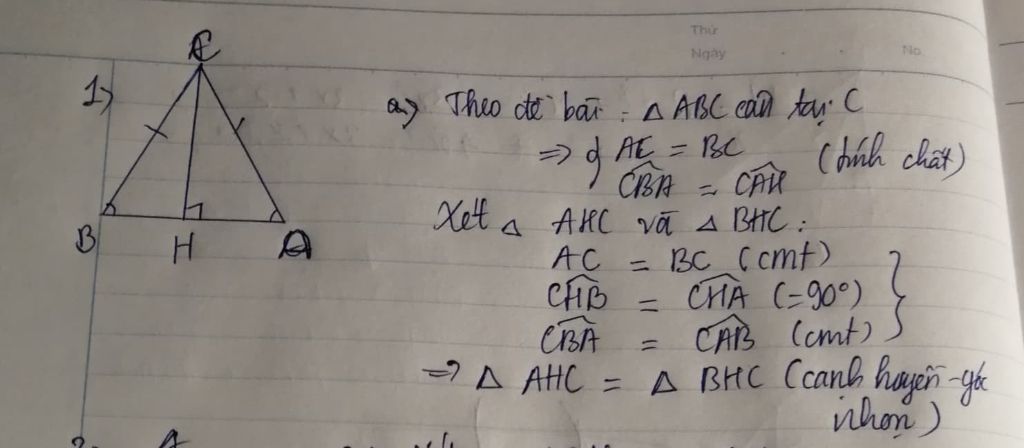 Thứ
Ngày
No.
1)
C
B
H
A
a) Theo đề bài : △ ABC cân tại C
=> { AC = BC (tính chất)
CBA = CAH
Xét △ AHC và △ BHC :
AC = BC (cmt)
CHB = CHA (=90°)
CBA = CAB (cmt)
=> △ AHC = △ BHC (cạnh huyền - góc
nhọn)
A